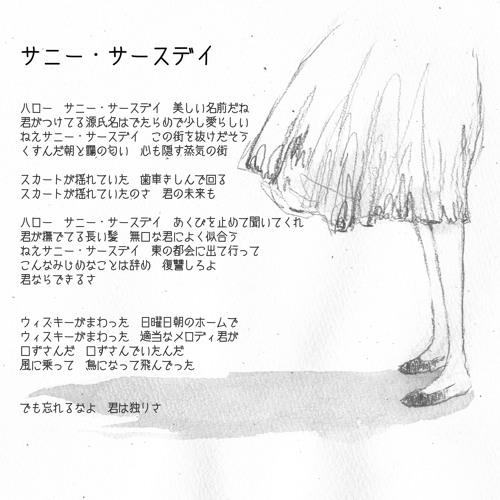 サニー・サースデイ
ハロー　サニー・サースデイ　美しい名前だね
君がつけてる源氏名はでたらめで少し愛らしい
ねえサニー・サースデイ　この街を抜けだそう
くすんだ朝と靄の匂い　心も隠す蒸気の街
スカートが揺れていた　歯車きしんで回る
スカートが揺れていたのさ　君の未来も
ハロー　サニー・サースデイ　あくびを止めて聞いてくれ
君が撫でてる長い髪　無口な君によく似合う
ねえサニー・サースデイ　東の都会に出て行って
こんなみじめなことは辞め　復讐しろよ
君ならできるさ
ウィスキーがまわった　日曜日朝のホームで
ウィスキーがまわった　適当なメロディ君が
口ずさんだ　口ずさんでいたんだ
風に乗って　鳥になって飛んでった
でも忘れるなよ　君は独りさ